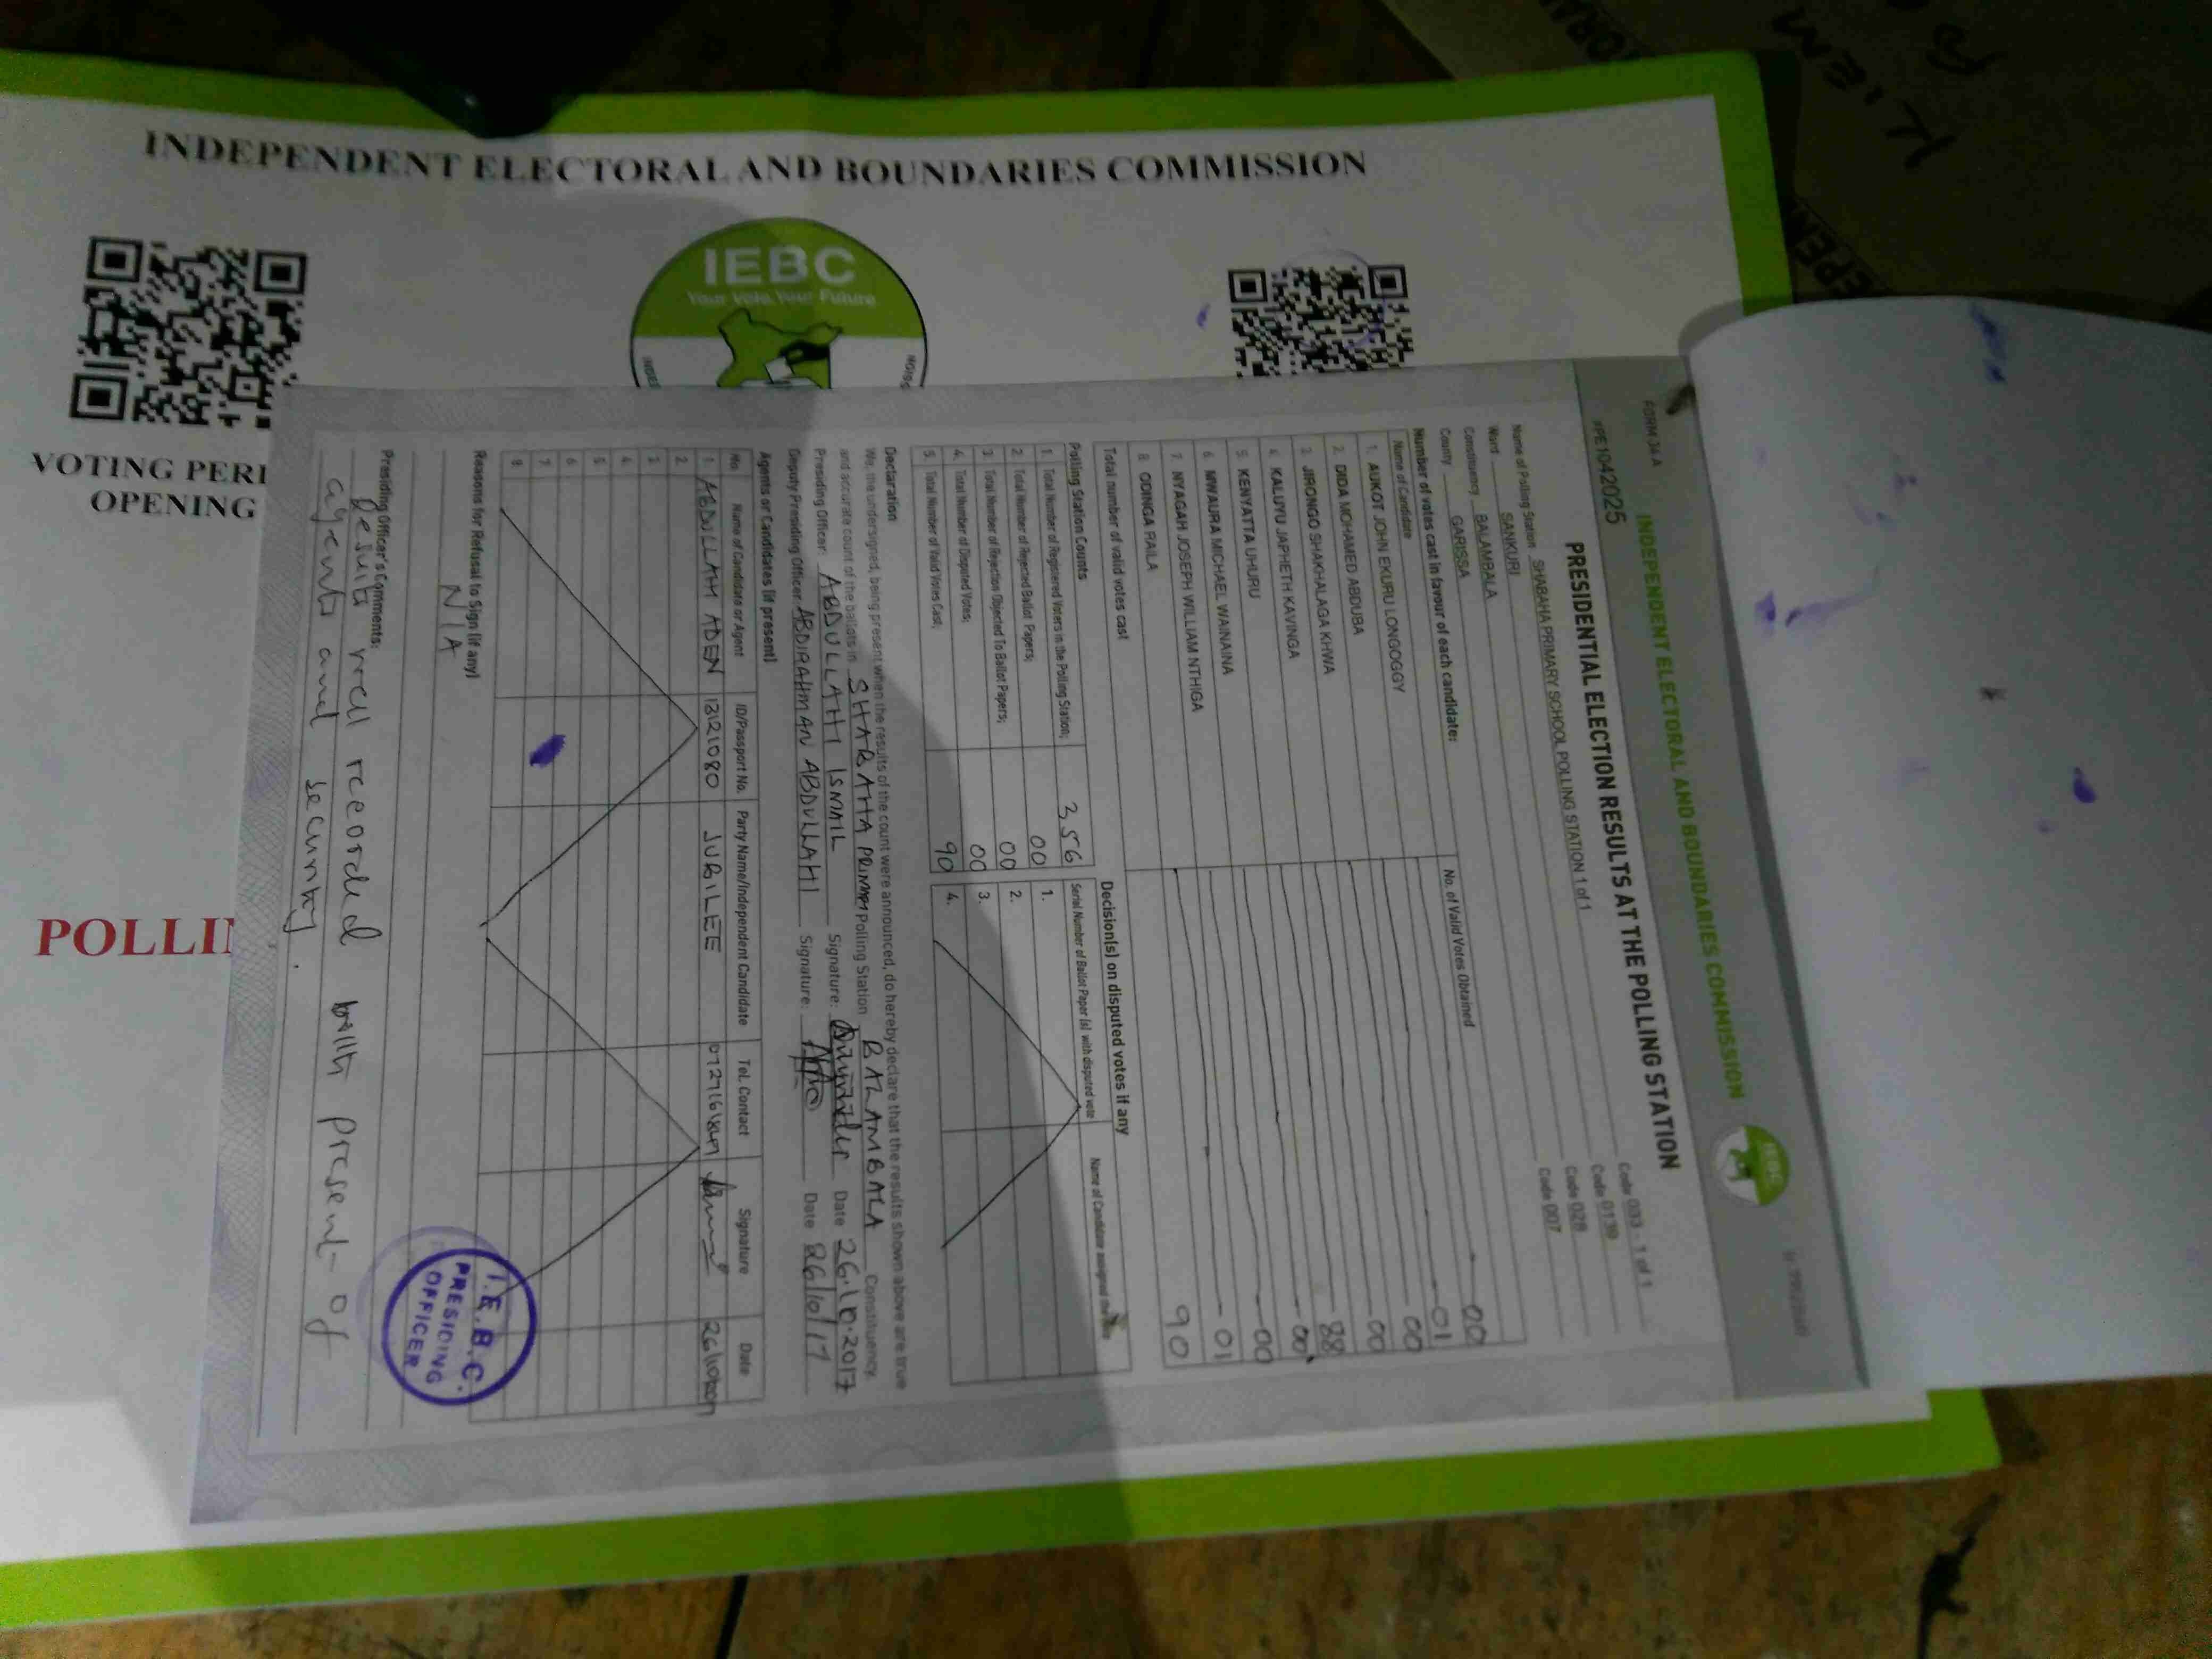 INDEPENDENT ELECTORAL AND BOUNDARIES COMMISSION
IEBC
Your Vote, Your Future
VOTING PERI
OPENING
POLLI
FORM 34 A
INDEPENDENT ELECTORAL AND BOUNDARIES COMMISSION
IEBC
PRESIDENTIAL ELECTION RESULTS AT THE POLLING STATION
Name of Polling Station SHABAHA PRIMARY SCHOOL POLLING STATION 1 of 1 Code 033 - 1 of 1
Ward SANKURI Code 0139
Constituency BALAMBALA Code 028
County GARISSA Code 007
Number of votes cast in favour of each candidate:
Name of Candidate No. of Valid Votes Obtained
1. AUKOT JOHN EKURU LONGOGGY 00
2. DIDA MOHAMED ABDUBA 01
3. JIRONGO SHAKHALAGA KHWA 00
4. KALUYU JAPHETH KAVINGA 00
5. KENYATTA UHURU 88
6. MWAURA MICHAEL WAINAINA 00
7. NYAGAH JOSEPH WILLIAM NTHIGA 00
8. ODINGA RAILA 01
Total number of valid votes cast 90
Polling Station Counts
1. Total Number of Registered Voters in the Polling Station; 356
2. Total Number of Rejected Ballot Papers; 00
3. Total Number of Rejection Objected To Ballot Papers; 00
4. Total Number of Disputed Votes; 00
5. Total Number of Valid Votes Cast; 90
Decision(s) on disputed votes if any
Serial Number of Ballot Paper (s) with disputed vote Name of Candidate assigned the
1.
2.
3.
4.
Declaration
We, the undersigned, being present when the results of the count were announced, do hereby declare that the results shown above are true
and accurate count of the ballots in Polling Station BALAMBALA Constituency.
Presiding Officer: ABDULLAHI ISMAIL Signature: Date 26.10.2017
Deputy Presiding Officer ABDIRAHMAN ABDULLAHI Signature: Date 26/10/17
Agents or Candidates (if present)
No. Name of Candidate or Agent ID/Passport No. Party Name/Independent Candidate Tel. Contact Signature Date
1. ABDULLAHI ADEN JUBILEE
2.
3.
4.
5.
6.
7.
8.
Reasons for Refusal to Sign (if any)
N/A
Presiding Officer's Comments:
Results well recorded with present of
agents and security.
I.E.B.C.
PRESIDING
OFFICER